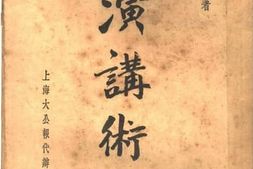 著
演講術
上海大公報代辦